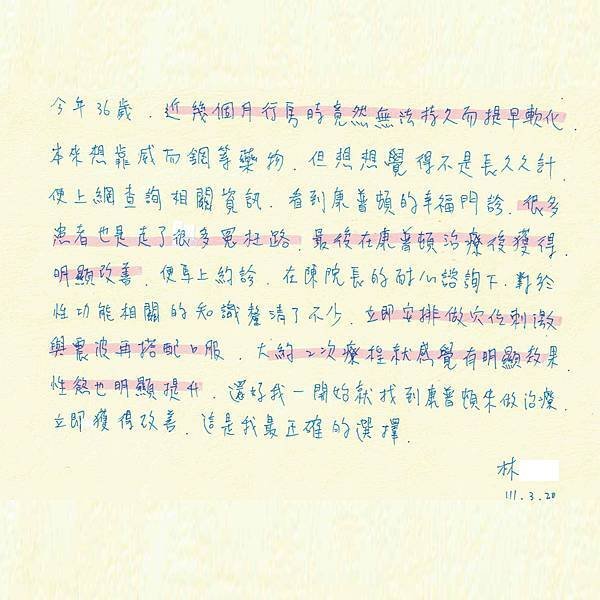 今年36歲．近幾個月行房時竟然無法持久而提早軟化．
本來想靠威而鋼等藥物．但想想覺得不是長久久計．
便上網查詢相關資訊．看到康普頓的幸福門診．很多
患者也是走了很多冤枉路．最後在康普頓治療後獲得
明顯改善．便馬上約診．在陳院長的耐心諮詢下．對於
性功能相關的知識釐清了不少．立即安排做穴位刺激
與震波再搭配口服．大約2次療程就感覺有明顯效果．
性慾也明顯提升．還好我一開始就找到康普頓來做治療．
立即獲得改善．這是我最正確的選擇．
林
111.3.20